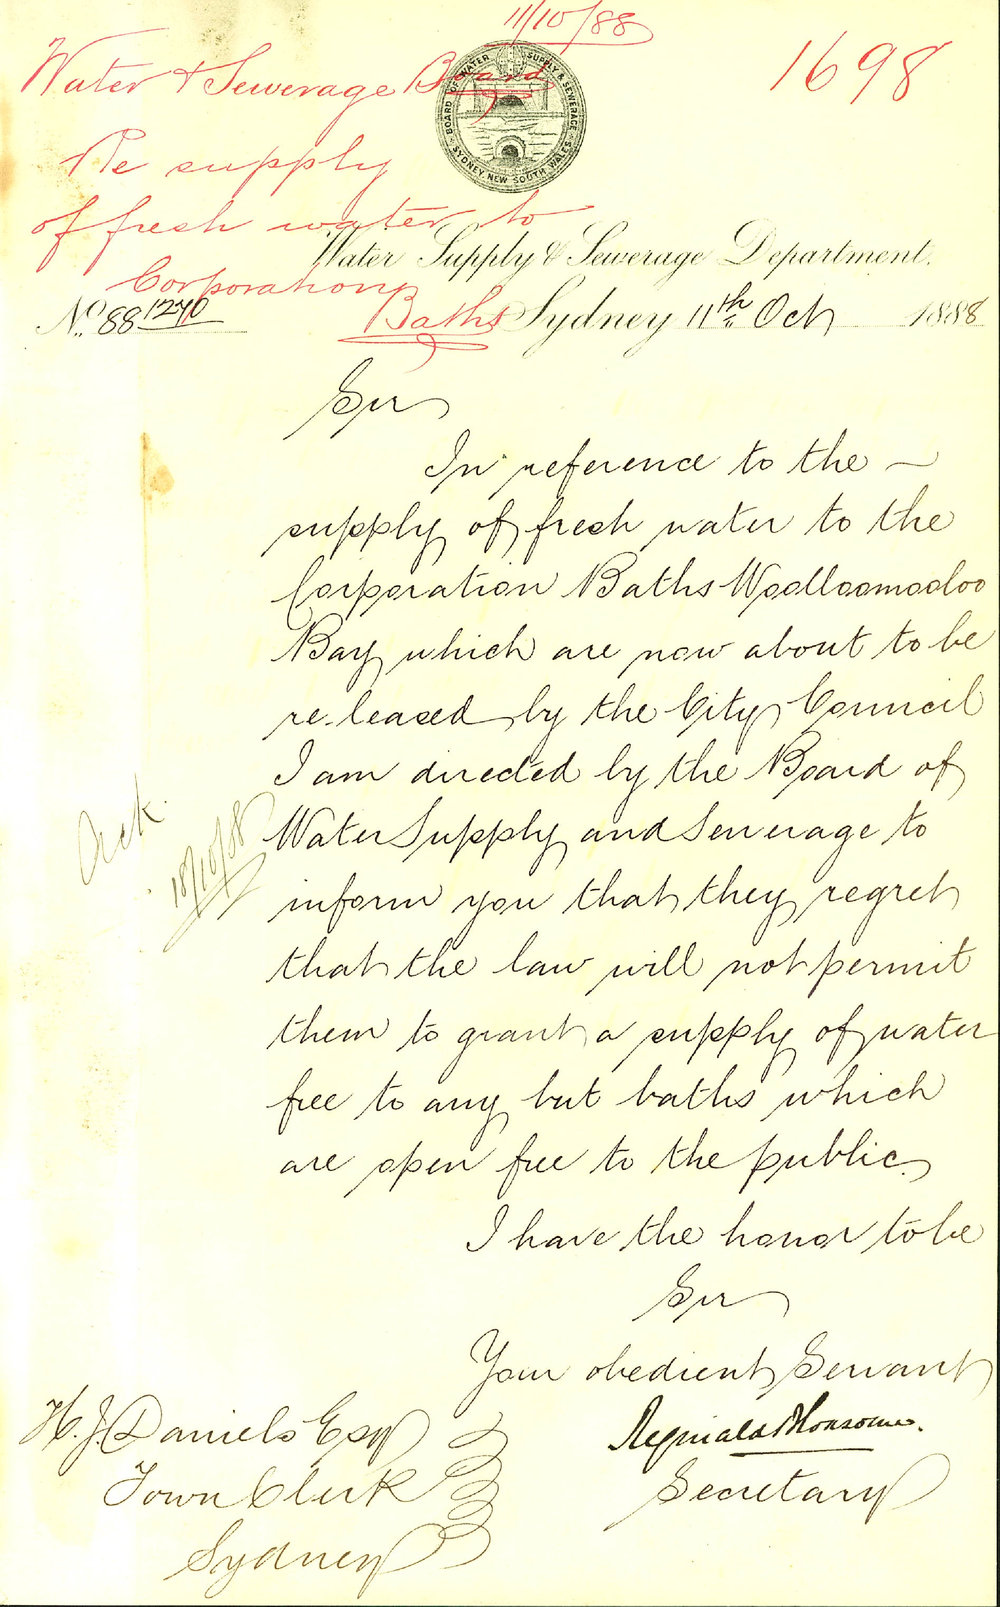 11/10/88
Water & Sewerage Board
1698
BOARD OF WATER SUPPLY & SEWERAGE
SYDNEY, NEW SOUTH WALES
Re supply
of fresh water to
Corporation
Baths
Water Supply & Sewerage Department.
No. 88 1270
Sydney 11th Oct 1888
Sir
In reference to the
supply of fresh water to the
Corporation Baths Woolloomooloo
Bay which are now about to be
re-leased by the City Council
I am directed by the Board of
Water Supply and Sewerage to
inform you that they regret
that the law will not permit
them to grant a supply of water
free to any but baths which
are open free to the public.
Ack.
18/10/88
I have the honor to be
Sir
Your obedient Servant
Reginald
Secretary
H. J. Daniels Esq
Town Clerk
Sydney